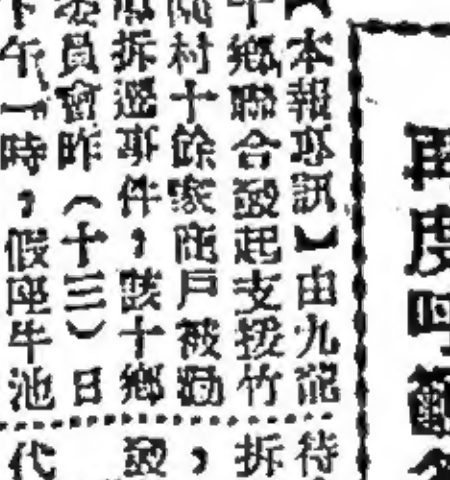 再度呼籲
【本報專訊】由九龍
十鄉聯合發起支援竹
園村十餘家商戶被
拆遷事件，該十鄉
委員會昨（十三）日
下午一時，假座牛池
待
拆
，
發
代